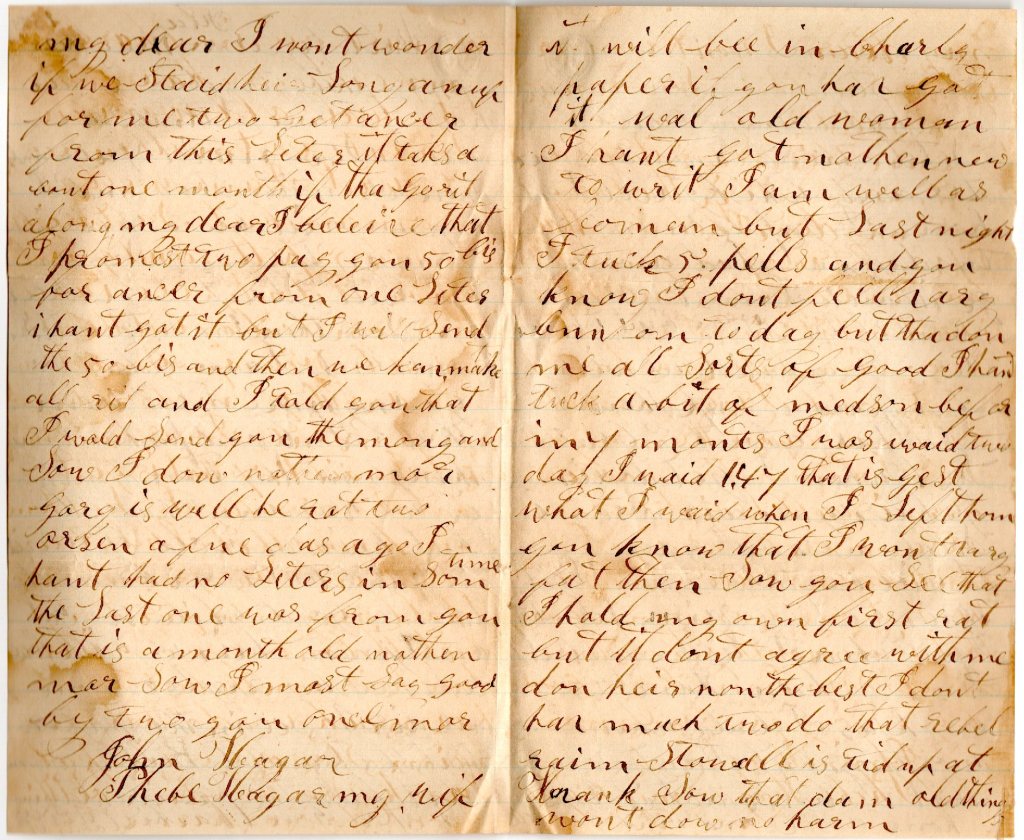 my dear I wont wonder
if we Staid heir Long anuf
for me two get ancer
from this Leter it taks a
bout one month if tha Go rit
along my dear I beleive that
I promest two pay you 50 bis
for ancer from one Leter
i hant got it but I will Send
the 50 bis and then we kan make
all rit and I told you that
I wold Send you the mony and
Sow I dow not mor
Gorg is well he rot two
orsen a fue d'as ago I
hant had no Leters in Som time
the Last one was from you
that is a month old nothen
mor Sow I most Say good
by two you one mor
John Hagar
Phebe Hagar my wif
it will bee in
paper if you har got
it wal old woman
I hant got nothen new
to writ I am well as
Comman but Last night
I tuck 5 pells and you
know I dont fell varg
to day but tha don
me all Sorts of Good I hant
tuck a bit of medson befor
in y monts I was waid two
day I waid 147 that is gest
what I waid when I Left hom
you know that I wont varg
fat then Sow you See that
I hold my own first rat
but it dont agree with me
don heir non the best I dont
har much two do that rebel
raim Stonwall is tid up at
Sow that dam old thing
wont dow no harm